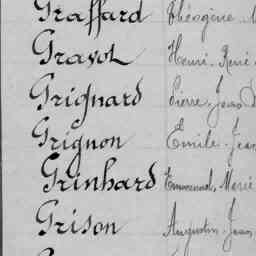 Graffard Théogène
Gravot Henri René
Grignard Pierre Jean
Grignon Emile Jean
Grinhard Emmanuel, Marie
Grison Augustin Jean